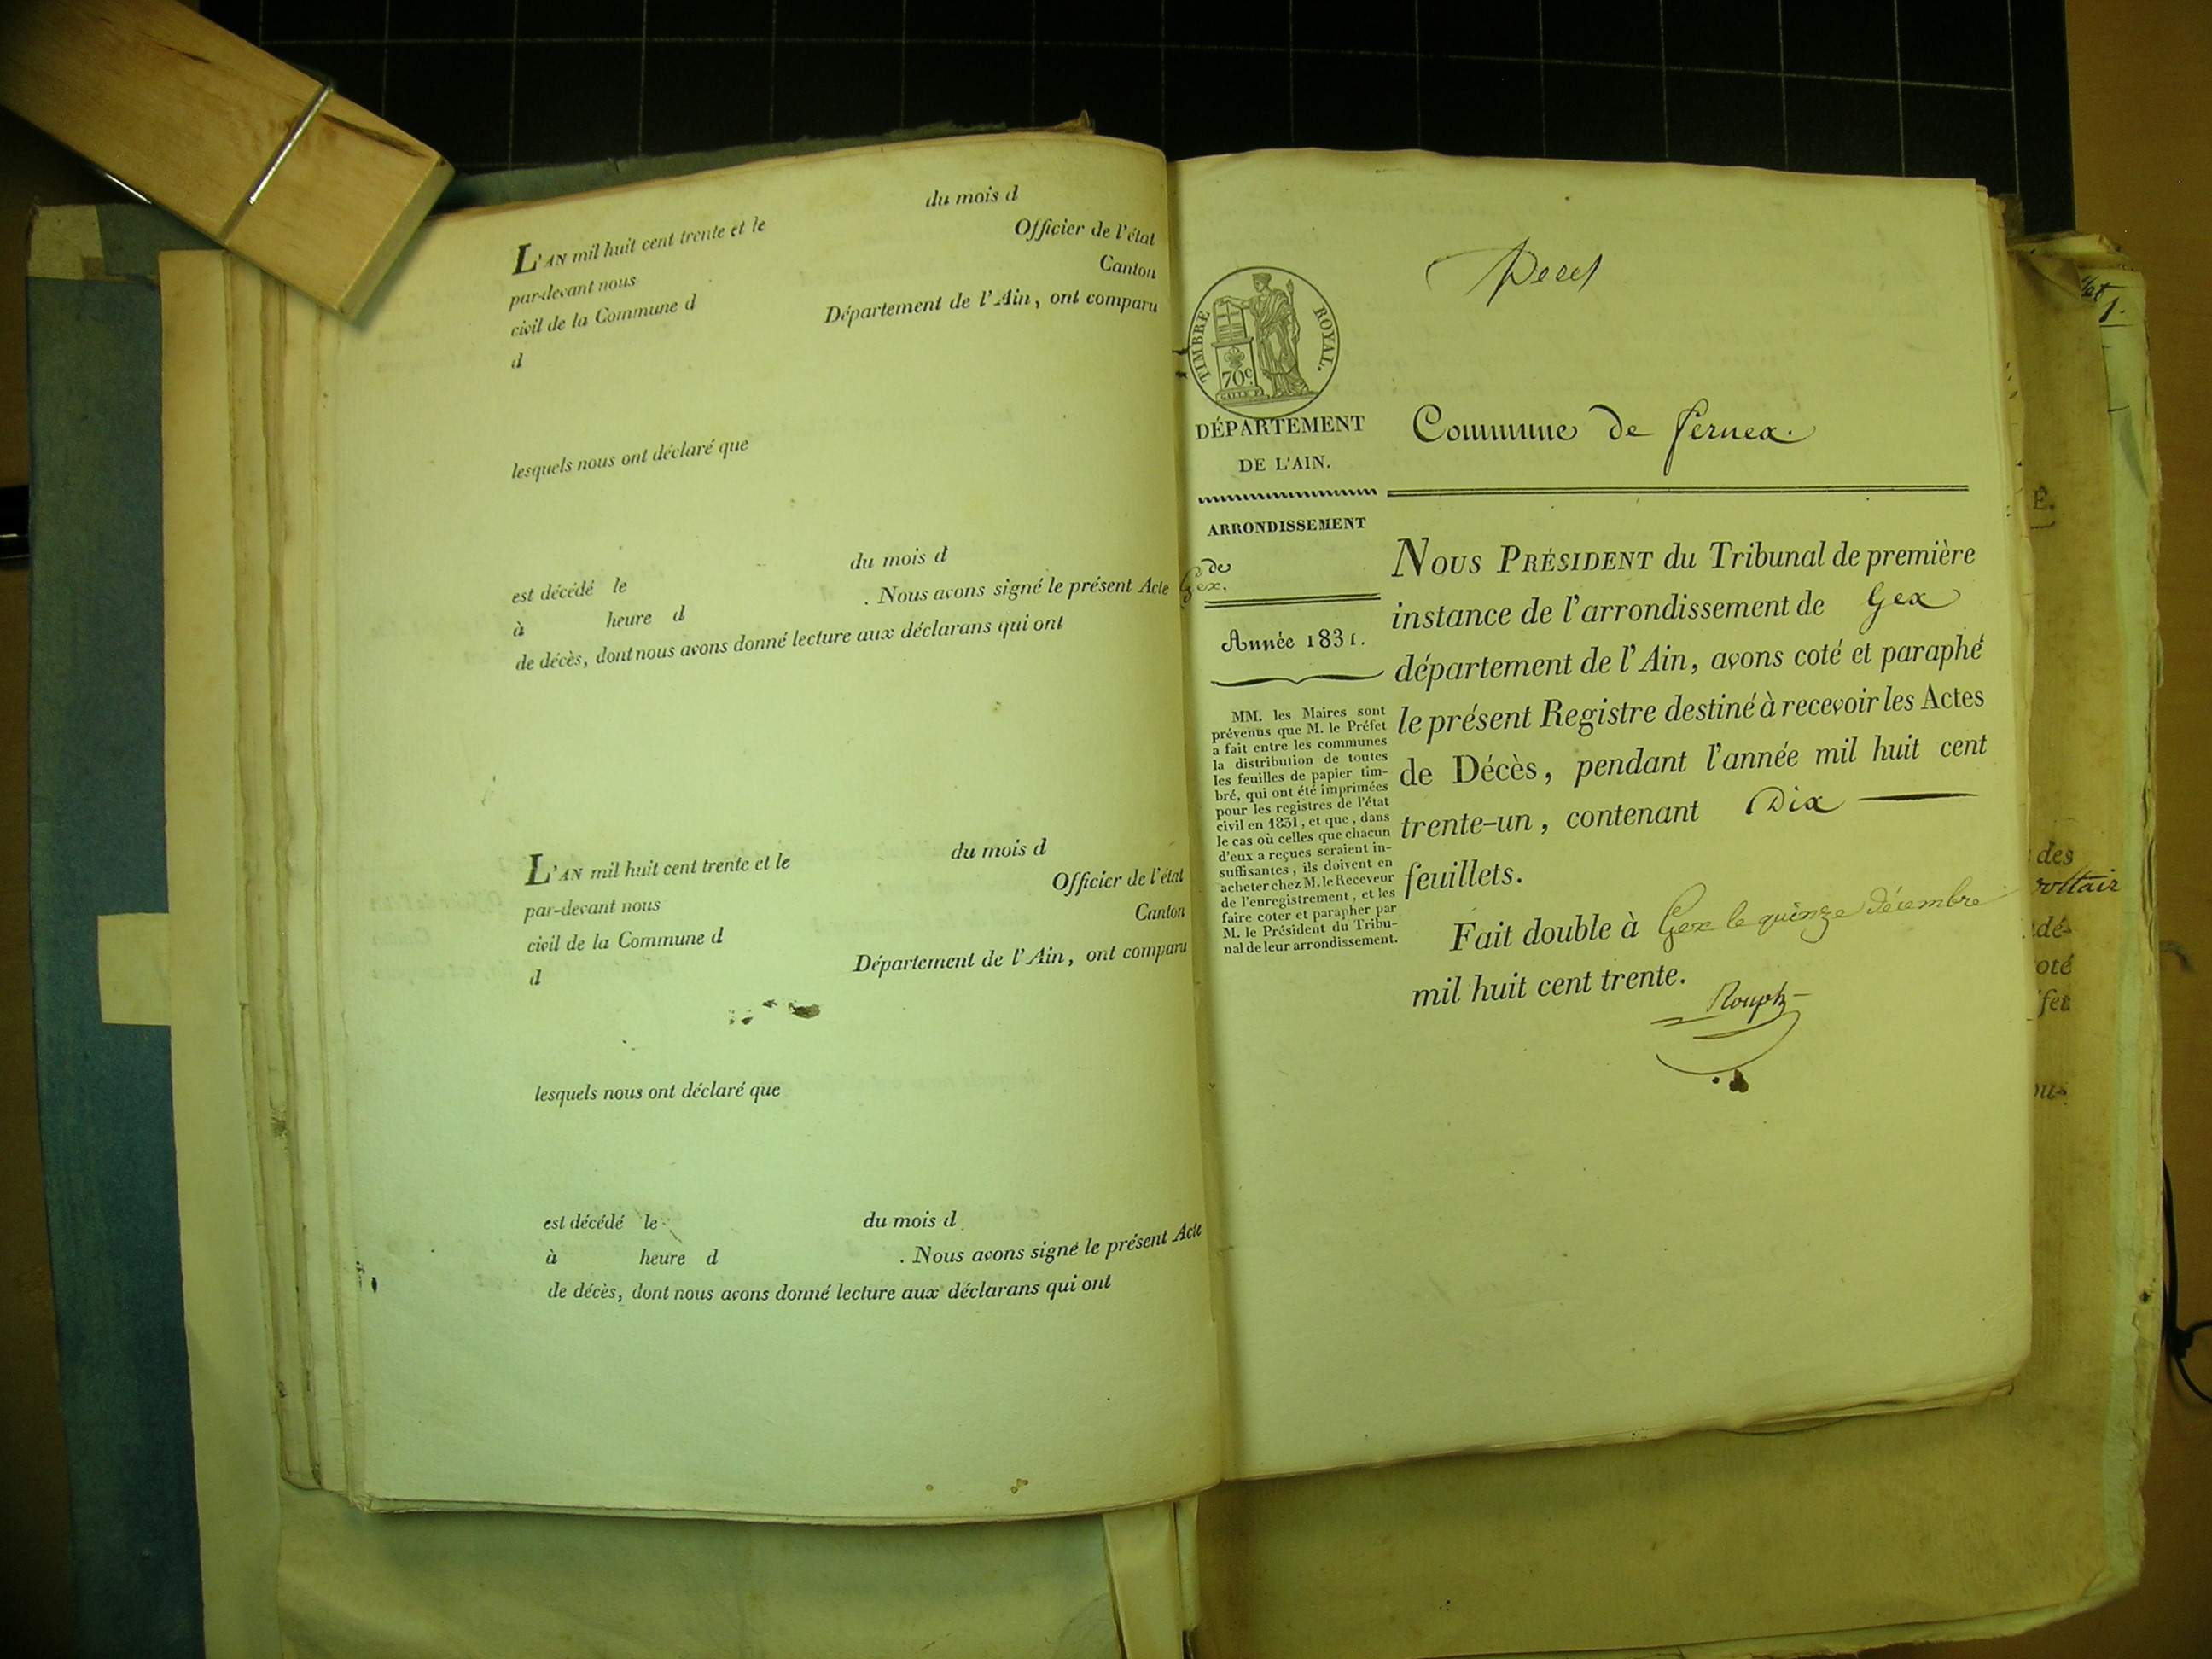 du mois d
L'AN mil huit cent trente et le
Officier de l'état
par-devant nous
Canton
civil de la Commune d
Département de l'Ain, ont comparu
d
lesquels nous ont déclaré que
du mois d
est décédé le
. Nous avons signé le présent Acte
à heure d
de décès, dont nous avons donné lecture aux déclarans qui ont
du mois d
L'AN mil huit cent trente et le
Officier de l'état
par-devant nous
Canton
civil de la Commune d
Département de l'Ain, ont comparu
d
lesquels nous ont déclaré que
est décédé le du mois d
à heure d . Nous avons signé le présent Acte
de décès, dont nous avons donné lecture aux déclarans qui ont
TIMBRE ROYAL.
70c.
GALLE F.
DÉPARTEMENT
DE L'AIN.
ARRONDISSEMENT
de
Gex.
Année 1831.
MM. les Maires sont
prévenus que M. le Préfet
a fait entre les communes
la distribution de toutes
les feuilles de papier tim-
bré, qui ont été imprimées
pour les registres de l'état
civil en 1831, et que, dans
le cas où celles que chacun
d'eux a reçues seraient in-
suffisantes, ils doivent en
acheter chez M. le Receveur
de l'enregistrement, et les
faire coter et parapher par
M. le Président du Tribu-
nal de leur arrondissement.
Commune de Fernex.
NOUS PRÉSIDENT du Tribunal de première
instance de l'arrondissement de Gex
département de l'Ain, avons coté et paraphé
le présent Registre destiné à recevoir les Actes
de Décès, pendant l'année mil huit cent
trente-un, contenant Dix
feuillets.
Fait double à Gex le quinze décembre
mil huit cent trente.
1.
E.
des
voltair
dé-
oté
fer